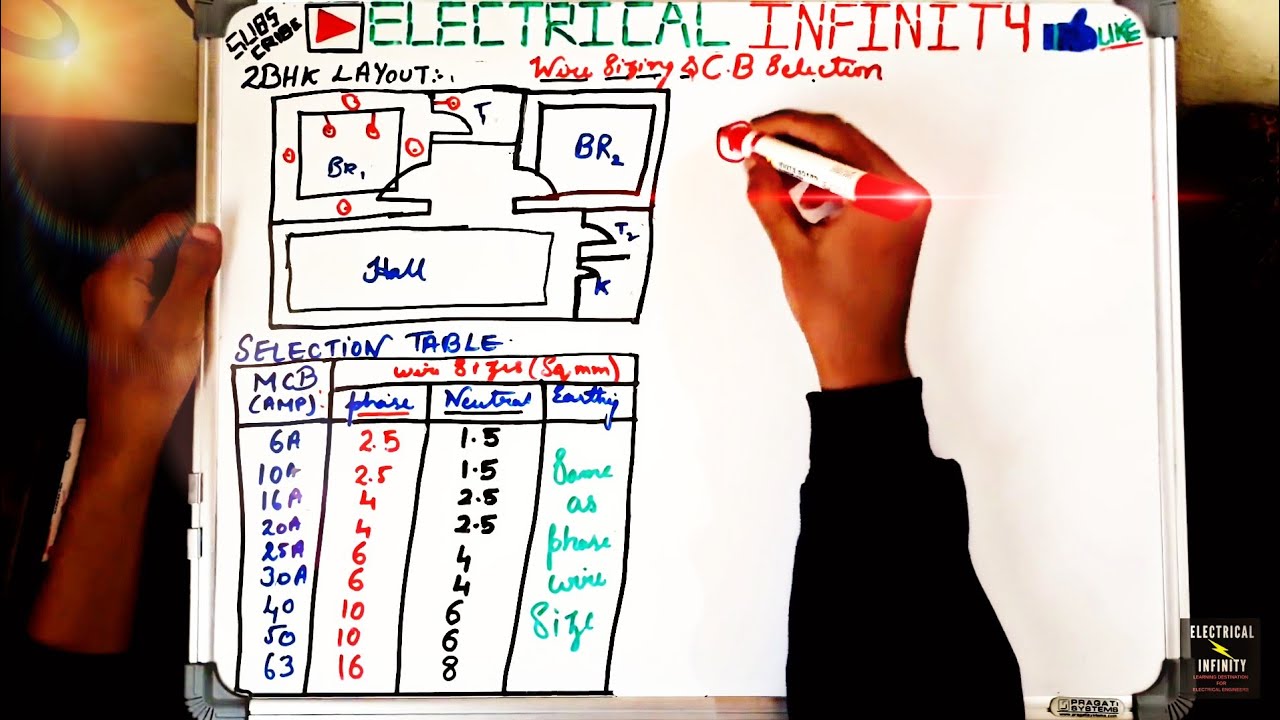 SUBSCRIBE
ELECTRICAL INFINITY
LIKE
2BHK LAYOUT:-
Wire Sizing & C.B Selection
T
BR1
BR2
T2
Hall
K
SELECTION TABLE
MCB (AMP) wire Sizes (Sq mm)
phase Neutral Earthig
6A 2.5 1.5
10A 2.5 1.5 Same
16A 4 2.5 as
20A 4 2.5
25A 6 4 phase
30A 6 4 wire
40 10 6 Size
50 10 6
63 16 8
ELECTRICAL
INFINITY
LEARNING DESTINATION
FOR
ELECTRICAL ENGINEERS
PRAGATI
SYSTEMS